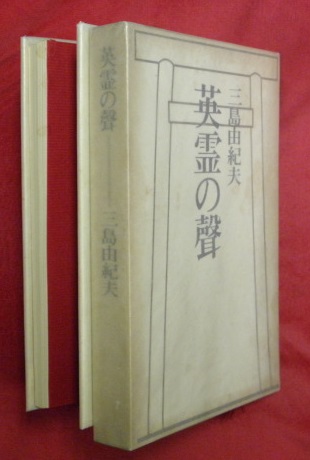 三島由紀夫
英霊の聲
英霊の聲
三島由紀夫